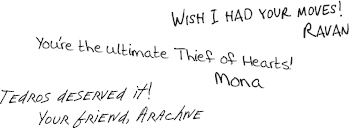 Wish I had your moves!
Ravan
You're the ultimate Thief of Hearts!
Mona
Tedros deserved it!
Your friend, Arachne